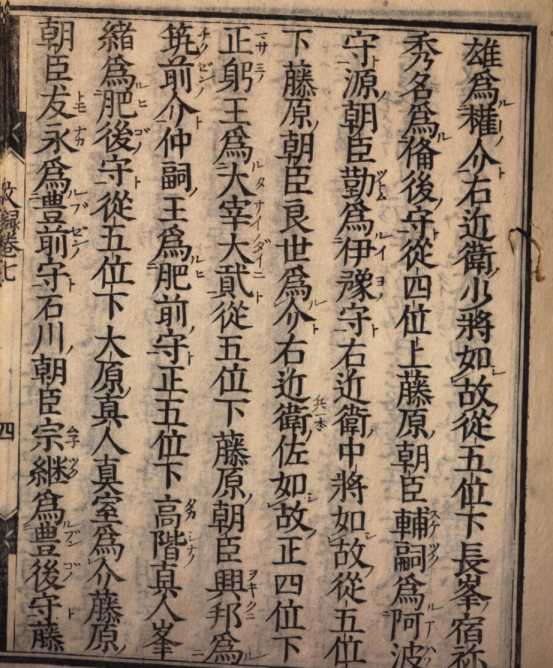 雄爲權介右近衛少將如故從五位下長峯宿祢
秀名爲俻後守從四位上藤原朝臣輔嗣爲阿波
守源朝臣勤爲伊豫守右近衛中將如故從五位
下藤原朝臣良世爲介右近衛佐如故正四位下
正躬王爲大宰大貳從五位下藤原朝臣興邦爲
筑前介仲嗣王爲肥前守正五位下高階真人峯
緒爲肥後守從五位下大原真人真室爲介藤原
朝臣友永爲豊前守石川朝臣宗継爲豊後守藤
卷七
四